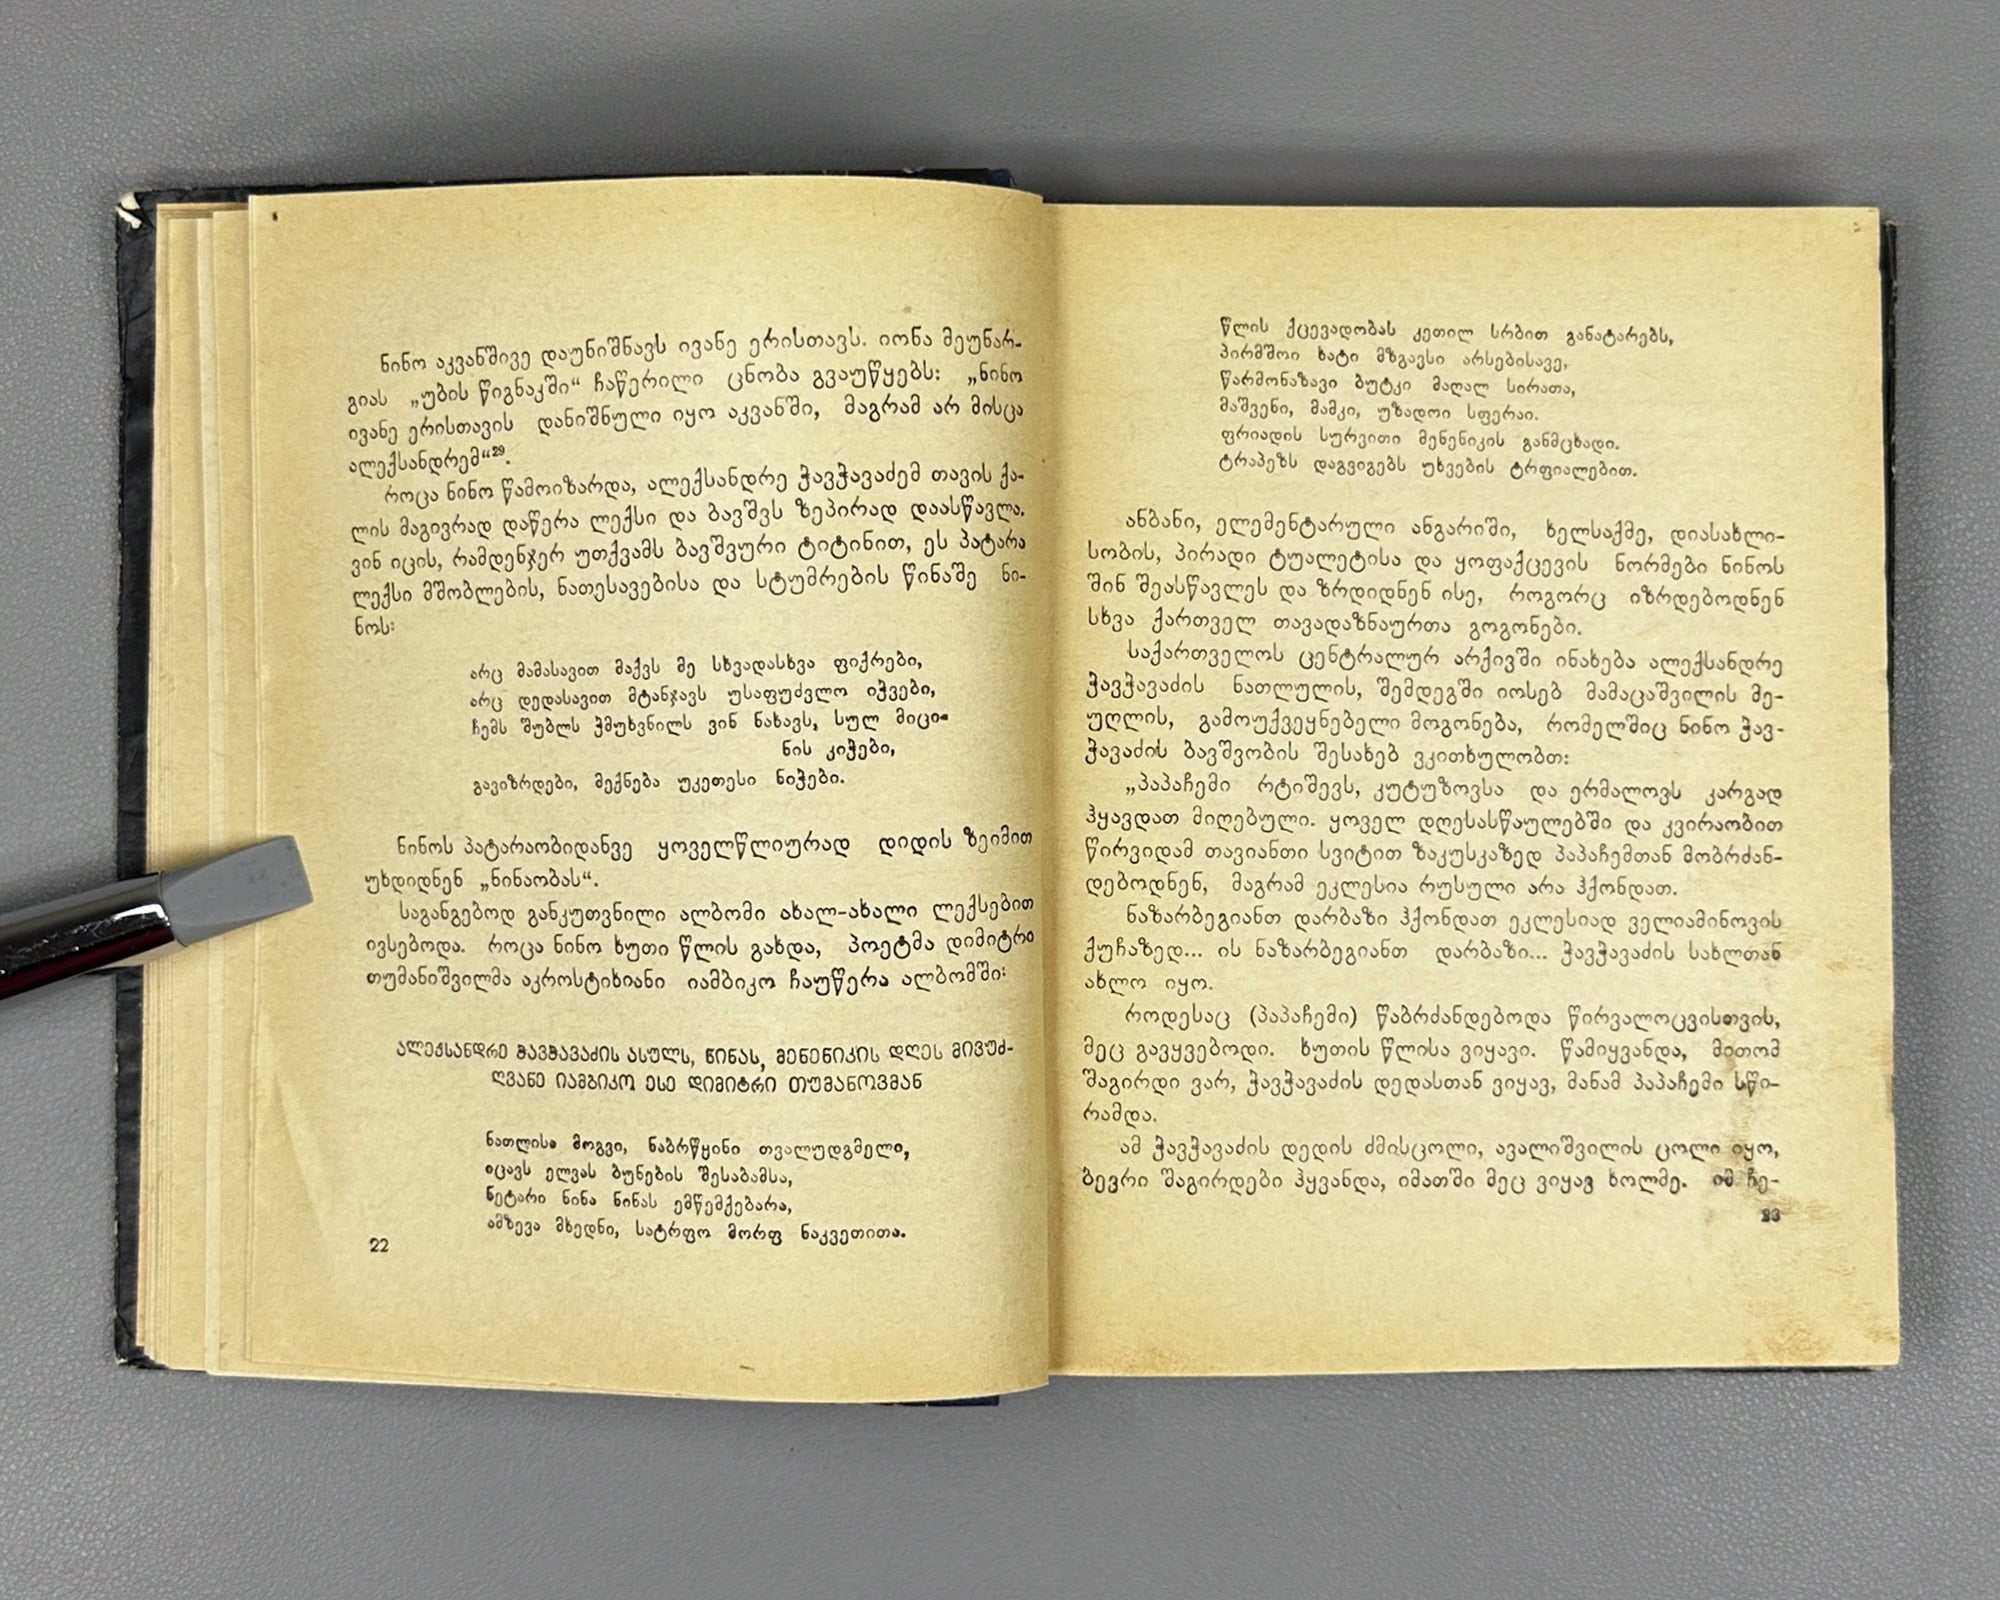 ნინო აკვანშივე დაუნიშნავს ივანე ერისთავს. იონა მეუნარ-
გიას „უბის წიგნაკში“ ჩაწერილი ცნობა გვაუწყებს: „ნინო
ივანე ერისთავის დანიშნული იყო აკვანში, მაგრამ არ მისცა
ალექსანდრემ“²⁹.
როცა ნინო წამოიზარდა, ალექსანდრე ჭავჭავაძემ თავის ქა-
ლის მაგივრად დაწერა ლექსი და ბავშვს ზეპირად დაასწავლა.
ვინ იცის, რამდენჯერ უთქვამს ბავშვური ტიტინით, ეს პატარა
ლექსი მშობლების, ნათესავებისა და სტუმრების წინაშე ნი-
ნოს:
არც მამასავით მაქვს მე სხვადასხვა ფიქრები,
არც დედასავით მტანჯავს უსაფუძვლო იჭვები,
ჩემს შუბლს ჭმუხვნილს ვინ ნახავს, სულ მიცი-
ნის კიჭები,
გავიზრდები, მექნება უკეთესი ნიჭები.
ნინოს პატარაობიდანვე ყოველწლიურად დიდის ზეიმით
უხდიდნენ „ნინაობას“.
საგანგებოდ განკუთვნილი ალბომი ახალ-ახალი ლექსებით
ივსებოდა. როცა ნინო ხუთი წლის გახდა, პოეტმა დიმიტრი
თუმანიშვილმა აკროსტიხიანი იამბიკო ჩაუწერა ალბომში:
ალექსანდრე ჭავჭავაძის ასულს, ნინას, მენენიკის დღეს მივუძ-
ღვანე იამბიკო ესე დიმიტრი თუმანოვმან
ნათლისა მოგვი, ნაბრწყინი თვალუდგმელი,
იცავს ელვას ბუნების შესაბამსა,
ნეტარი ნინა ნინას ემწემქებარა,
ამზევა მხედნი, სატრფო მორფ ნაკვეთითა.
22
წლის ქცევადობას კეთილ სრბით განატარებს,
პირმშოი ხატი მზგავსი არსებისავე,
წარმონაზავი ბუტკი მაღალ სირათა,
მაშვენი, მამკი, უზადოი სფერაი.
ფრიადის სურვითი მენენიკის განმცხადი.
ტრაპეზს დაგვიგებს უხვების ტრფიალებით.
ანბანი, ელემენტარული ანგარიში, ხელსაქმე, დიასახლი-
სობის, პირადი ტუალეტისა და ყოფაქცევის ნორმები ნინოს
შინ შეასწავლეს და ზრდიდნენ ისე, როგორც იზრდებოდნენ
სხვა ქართველ თავადაზნაურთა გოგონები.
საქართველოს ცენტრალურ არქივში ინახება ალექსანდრე
ჭავჭავაძის ნათლულის, შემდეგში იოსებ მამაცაშვილის მე-
უღლის, გამოუქვეყნებელი მოგონება, რომელშიც ნინო ჭავ-
ჭავაძის ბავშვობის შესახებ ვკითხულობთ:
„პაპაჩემი რტიშევს, კუტუზოვსა და ერმალოვს კარგად
ჰყავდათ მიღებული. ყოველ დღესასწაულებში და კვირაობით
წირვიდამ თავიანთი სვიტით ზაკუსკაზედ პაპაჩემთან მობრძან-
დებოდნენ, მაგრამ ეკლესია რუსული არა ჰქონდათ.
ნაზარბეგიანთ დარბაზი ჰქონდათ ეკლესიად ველიამინოვის
ქუჩაზედ... ის ნაზარბეგიანთ დარბაზი... ჭავჭავაძის სახლთან
ახლო იყო.
როდესაც (პაპაჩემი) წაბრძანდებოდა წირვალოცვისთვის,
მეც გავყვებოდი. ხუთის წლისა ვიყავი. წამიყვანდა, მითომ
შაგირდი ვარ, ჭავჭავაძის დედასთან ვიყავ, მანამ პაპაჩემი სწი-
რამდა.
ამ ჭავჭავაძის დედის ძმისცოლი, ავალიშვილის ცოლი იყო,
ბევრი შაგირდები ჰყვანდა, იმათში მეც ვიყავ ხოლმე. იმ ჩე-
23